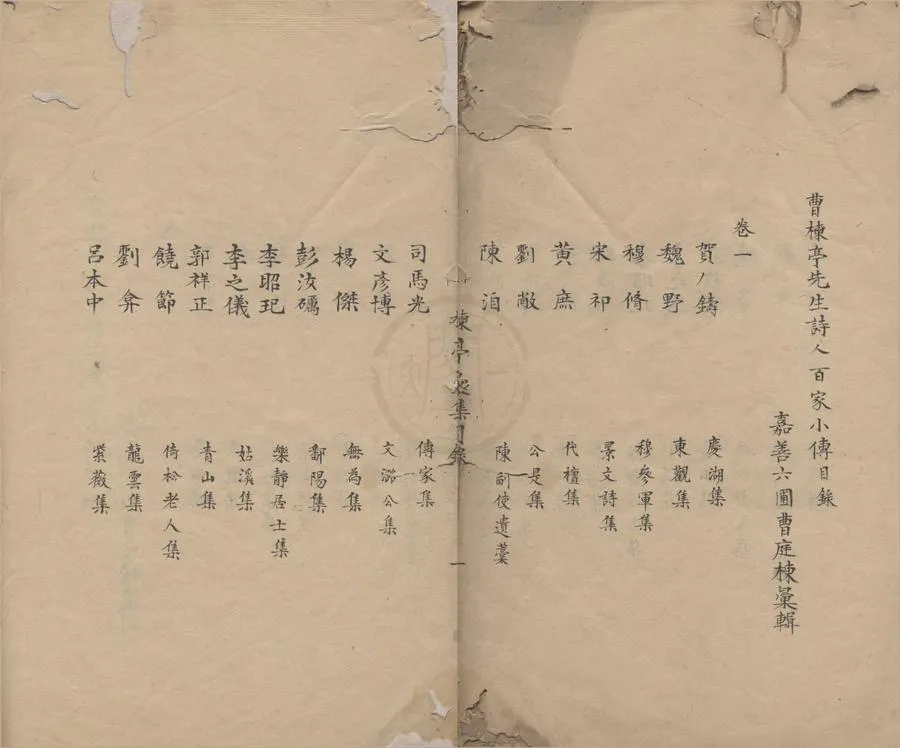 曹棟亭先生詩人百家小傳目錄
嘉善六圃曹庭棟彙輯
卷一
賀鑄 慶湖集
魏野 東觀集
穆脩 穆參軍集
宋祁 景文詩集
黃庶 代檀集
劉敞 公是集
陳洎 陳副使遺藁
棟亭 集目錄
一
司馬光 傳家集
文彥博 文潞公集
楊傑 無為集
彭汝礪 鄱陽集
李昭玘 樂靜居士集
李之儀 姑溪集
郭祥正 青山集
饒節 倚松老人集
劉弇 龍雲集
呂本中 紫薇集